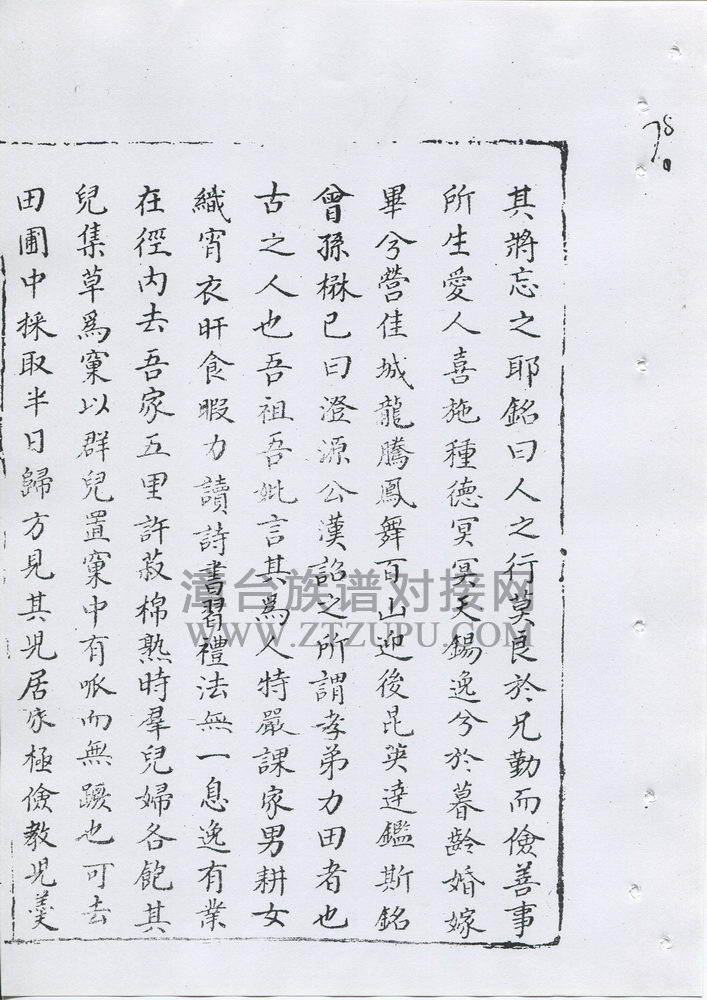 其將忘之耶銘曰人之行莫良於兄勤而儉善事
所生愛人喜施種德冥冥天錫逸兮於暮齡婚嫁
畢兮營佳城龍騰鳳舞百山迎後昆英達鑑斯銘
曾孫楙已曰澄源公漢詔之所謂孝弟力田者也
古之人也吾祖吾妣言其為人特嚴課家男耕女
織宵衣旰食暇力讀詩書習禮法無一息逸有業
在徑內去吾家五里許菽棉熟時羣兒婦各飽其
兒集草為窠以群兒置窠中有哌而無蹶也可去
田圃中採取半日歸方見其兒居家極儉教兒羹
漳台族谱对接网
WWW.ZTZUPU.COM
78